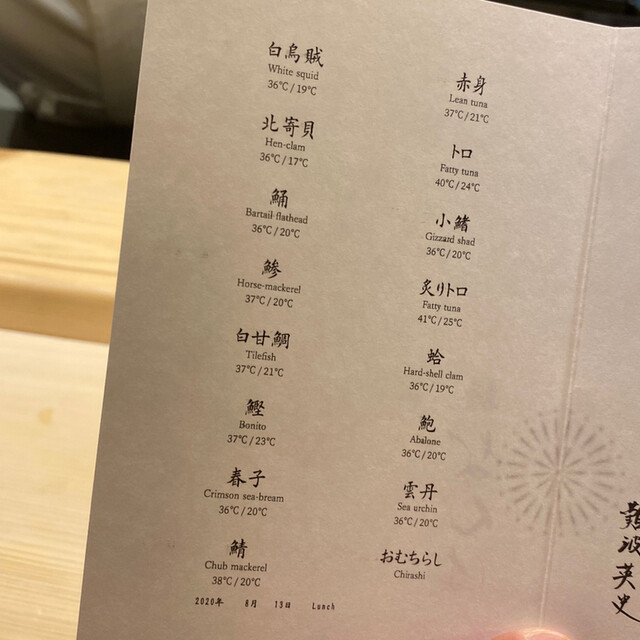 白烏賊
White squid
36℃/19℃
北寄貝
Hen-clam
36℃/17℃
鯒
Bartail flathead
36℃/20℃
鯵
Horse-mackerel
37℃/20℃
白甘鯛
Tilefish
37℃/21℃
鰹
Bonito
37℃/23℃
春子
Crimson sea-bream
36℃/20℃
鯖
Chub mackerel
38℃/20℃
2020年 8月 13日 Lunch
赤身
Lean tuna
37℃/21℃
トロ
Fatty tuna
40℃/24℃
小鰭
Gizzard shad
36℃/20℃
炙りトロ
Fatty tuna
41℃/25℃
蛤
Hard-shell clam
36℃/19℃
鮑
Abalone
36℃/20℃
雲丹
Sea urchin
36℃/20℃
おむちらし
Chirashi
難波英史